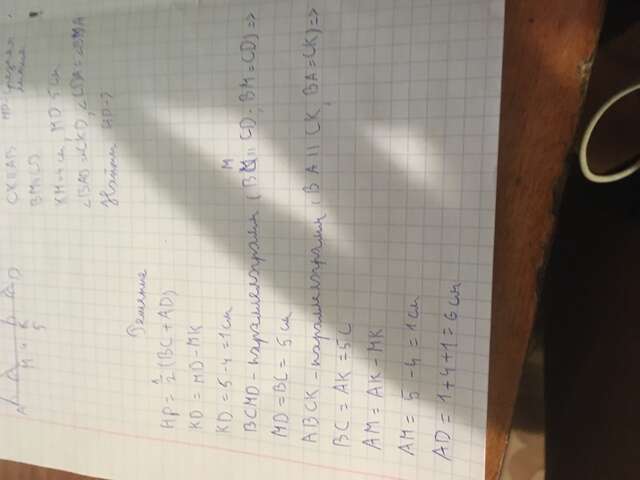 A M 4 K D
5
CK || AB HP-средняя линия
BM || CD
KM=4 см, MD 5 см
∠BAD=∠CKD, ∠CDA=∠BMA
Найти HP-?
Решение
HP = 1/2 (BC + AD)
KD = MD - MK
KD = 5 - 4 = 1 см
BCMD - параллелограмм (BM || CD; BM = CD) =>
MD = BC = 5 см
ABCK - параллелограмм (BA || CK, BA = CK) =>
BC = AK = 5С
AM = AK - MK
AM = 5 - 4 = 1 см
AD = 1 + 4 + 1 = 6 см